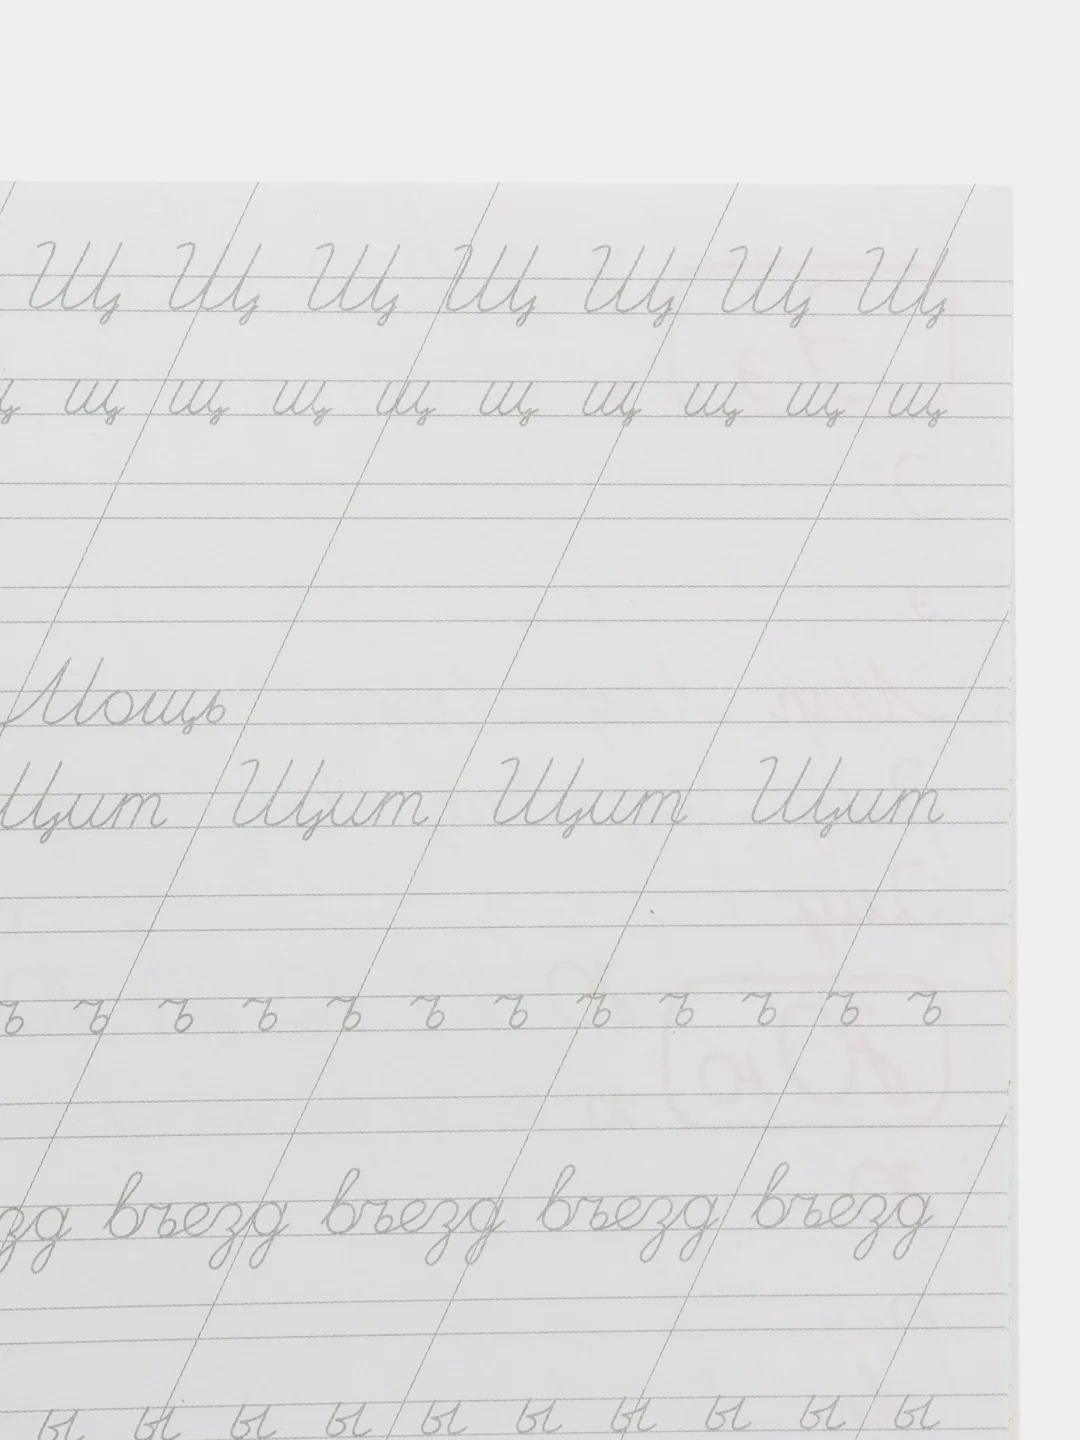 Щ Щ Щ Щ Щ Щ Щ
щ щ щ щ щ щ щ щ щ щ
Мощь
Щит Щит Щит Щит
ъ ъ ъ ъ ъ ъ ъ ъ ъ ъ ъ ъ
зд въезд въезд въезд въезд
ы ы ы ы ы ы ы ы ы ы